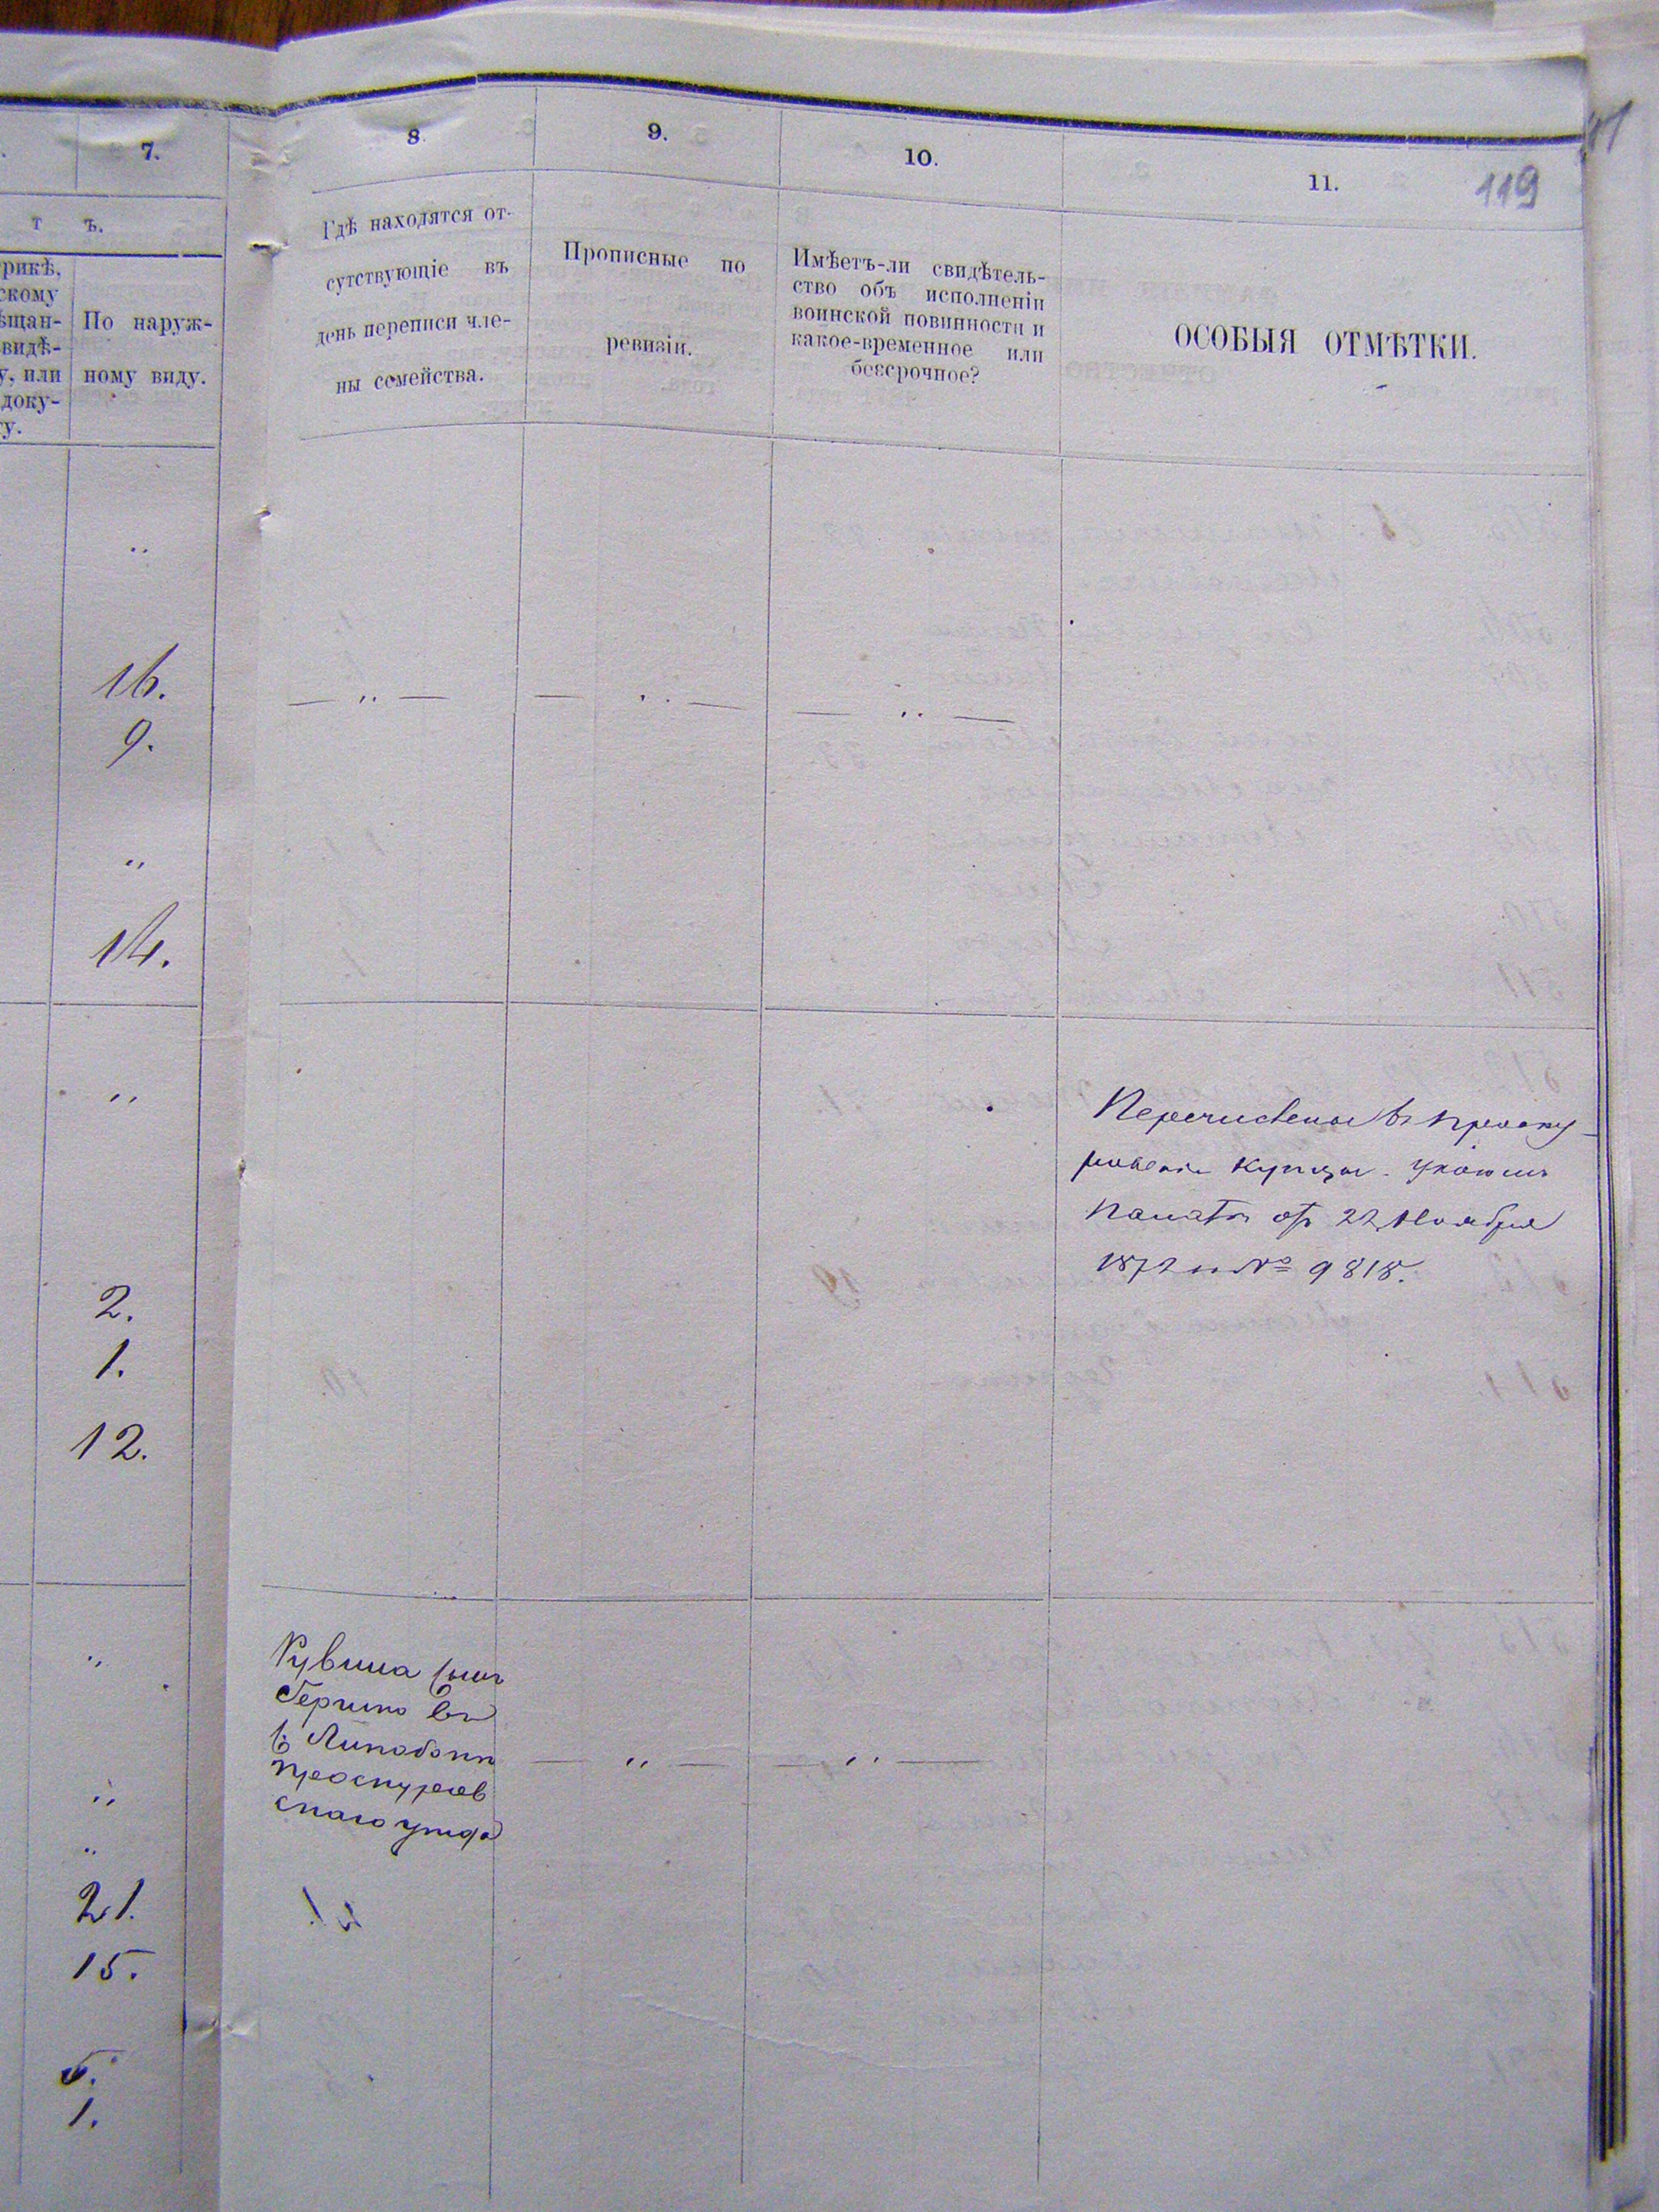 7.
8.
9.
10.
11.
119
т ъ.
рикѣ,
скому
ѣщан-
видѣ-
у, или
доку-
гу.
По наруж-
ному виду.
Гдѣ находятся от-
сутствующіе въ
день переписи чле-
ны семейства.
Прописные по
ревизіи.
Имѣетъ-ли свидѣтель-
ство объ исполненіи
воинской повинности и
какое-временное или
безсрочное?
ОСОБЫЯ ОТМѢТКИ.
„
16.
9.
— „ —
— „ —
— „ —
„
14.
„
Перечислены въ Проску-
ровскіе купцы. Указомъ
Палаты отъ 22 Ноября
1872 № 9818.
2.
1.
12.
„
Рувина сынъ
Гершко въ
Проскуров
скаго уѣзда
— „ —
— „ —
„
„
21.
15.
5.
1.